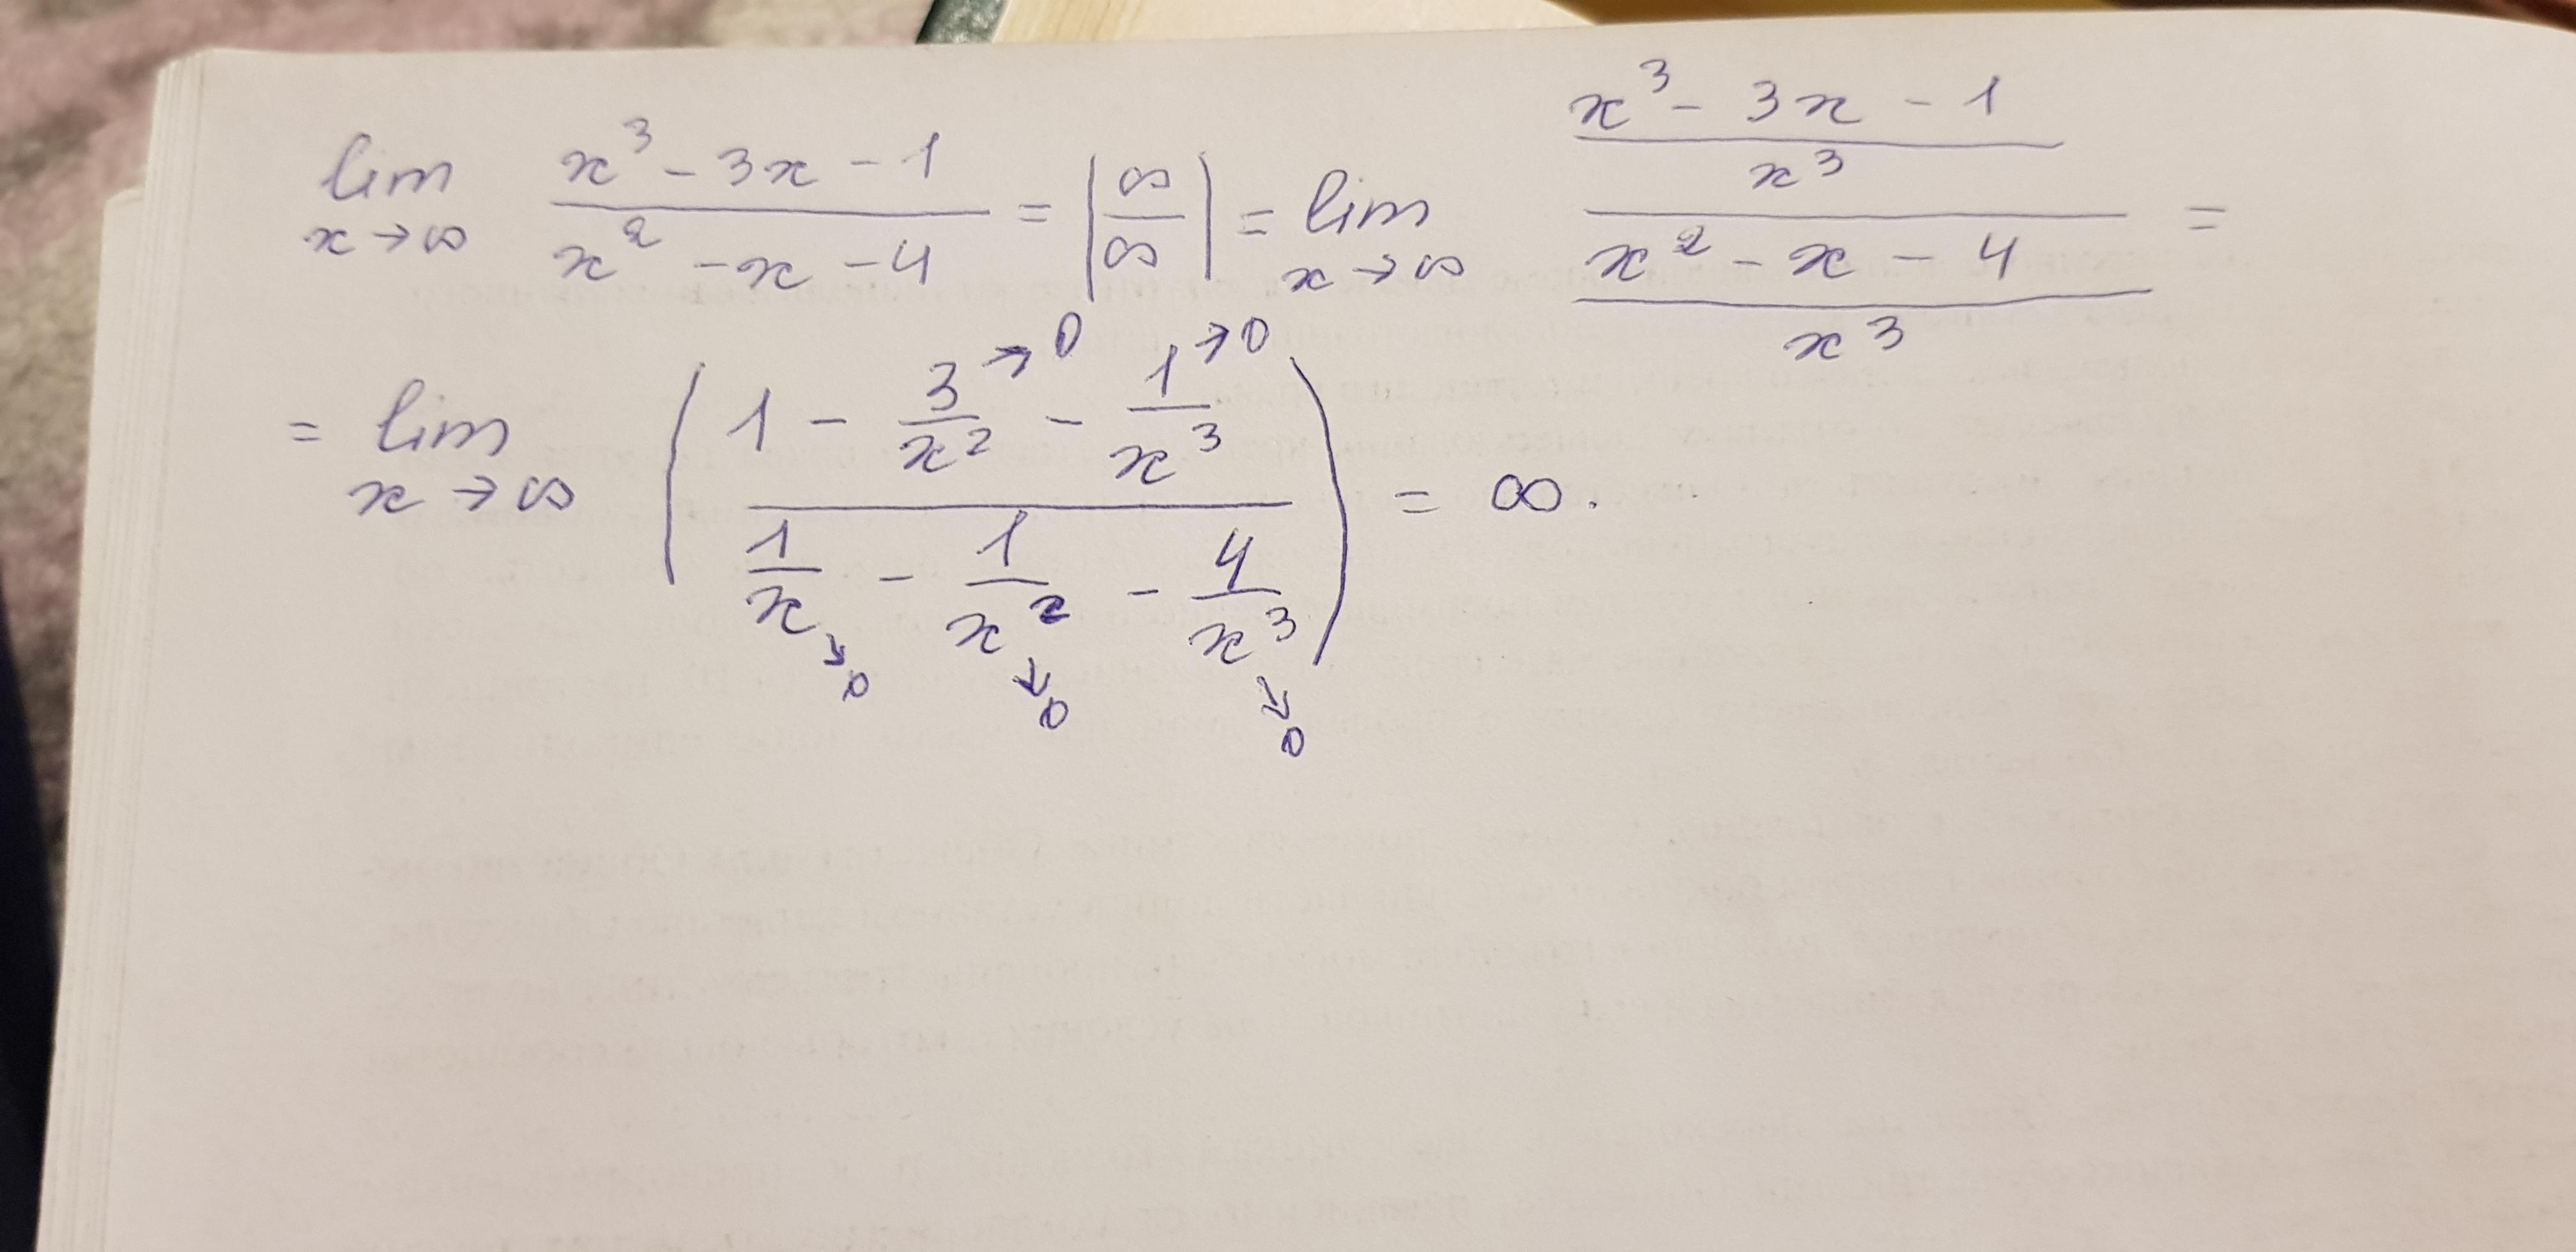 lim x→∞ (x³ - 3x - 1)/(x² - x - 4) = |∞/∞| = lim x→∞ ((x³ - 3x - 1)/x³)/((x² - x - 4)/x³) =
= lim x→∞ ((1 - 3/x²→0 - 1/x³→0)/(1/x→0 - 1/x²→0 - 4/x³→0)) = ∞.